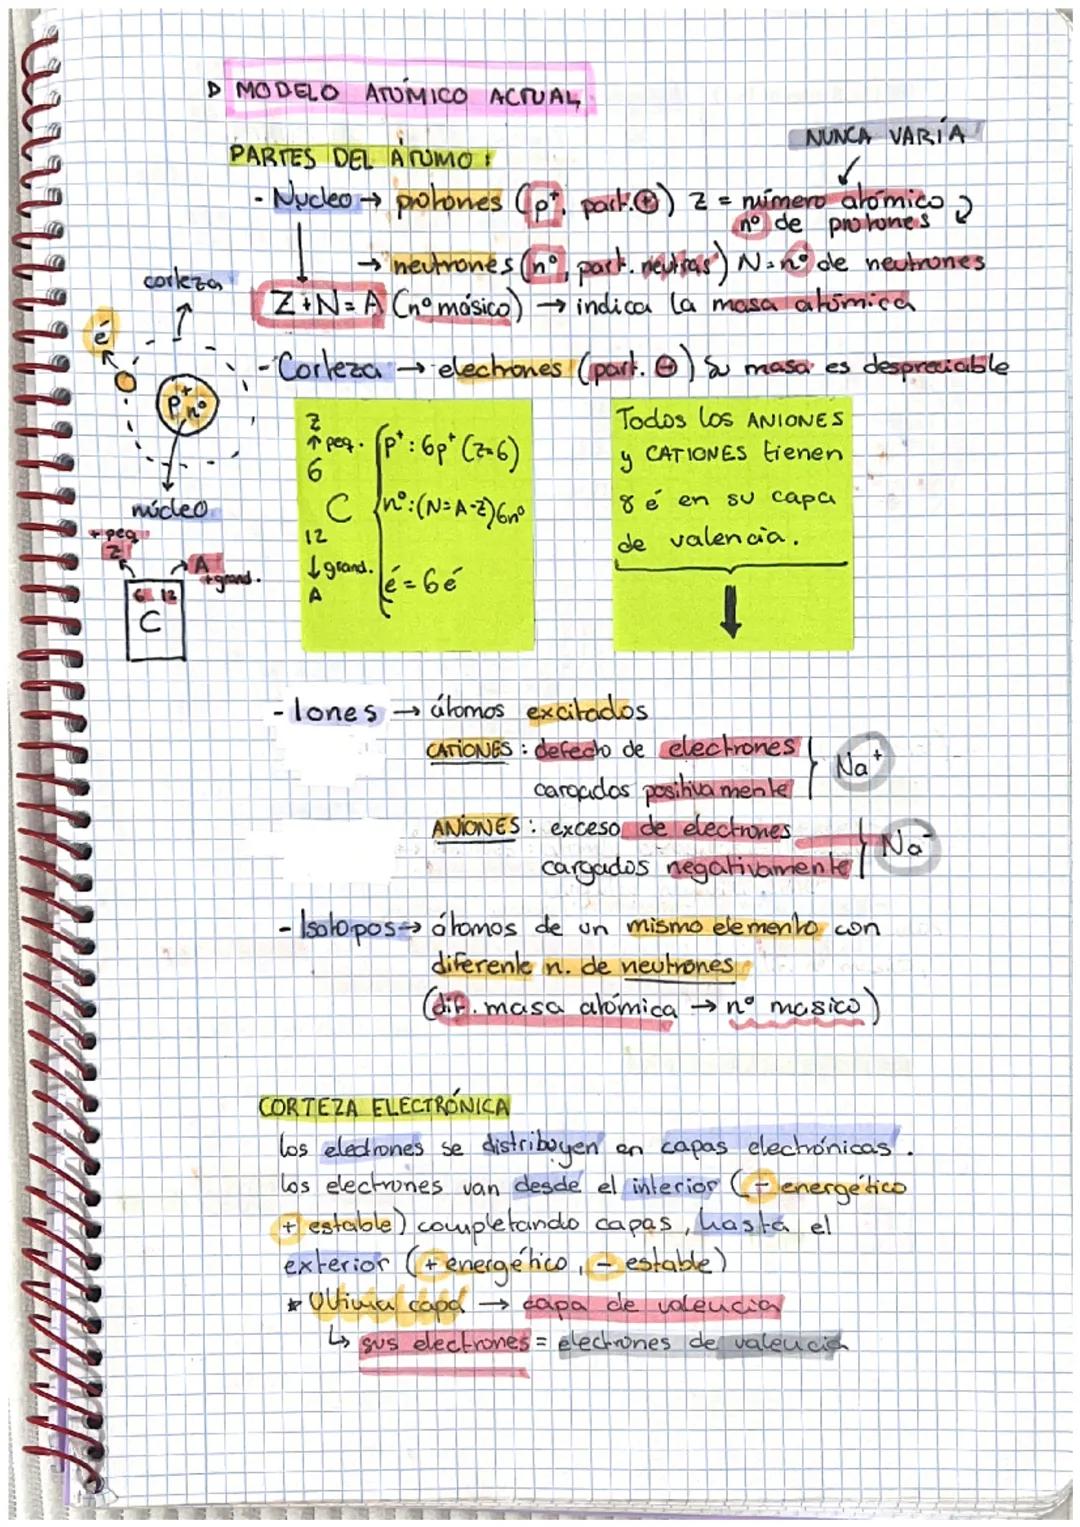 ▷ MODELO ATÓMICO ACTUAL
NUNCA VARÍA
PARTES DEL ÁTOMO :
- Nucleo → protones (p⁺, part. ⊕) Z = número atómico
nº de protones
→ neutrones (nº, part. neutras) N = nº de neutrones
Z + N = A (nº másico) → indica la masa atómica
corteza
é
p⁺ nº
núcleo
- Corteza → electrones (part. ⊖) su masa es despreciable
+ peq.
Z
A
+ grand.
6 12
C
Z
↑ peq.
6
C
12
↓ grand.
A
p⁺ : 6p⁺ (Z=6)
nº : (N=A-Z) 6nº
é = 6 é
Todos los ANIONES
y CATIONES tienen
8 é en su capa
de valencia.
- Iones → átomos excitados
CATIONES : defecto de electrones
cargados positivamente
Na⁺
ANIONES : exceso de electrones
cargados negativamente
Na⁻
- Isotopos → átomos de un mismo elemento con
diferente n. de neutrones
(dif. masa atómica → nº masico)
CORTEZA ELECTRÓNICA
Los electrones se distribuyen en capas electrónicas.
Los electrones van desde el interior (- energético
+ estable) completando capas, hasta el
exterior (+ energético, - estable)
* Ultima capa → capa de valencia
↳ sus electrones = electrones de valencia